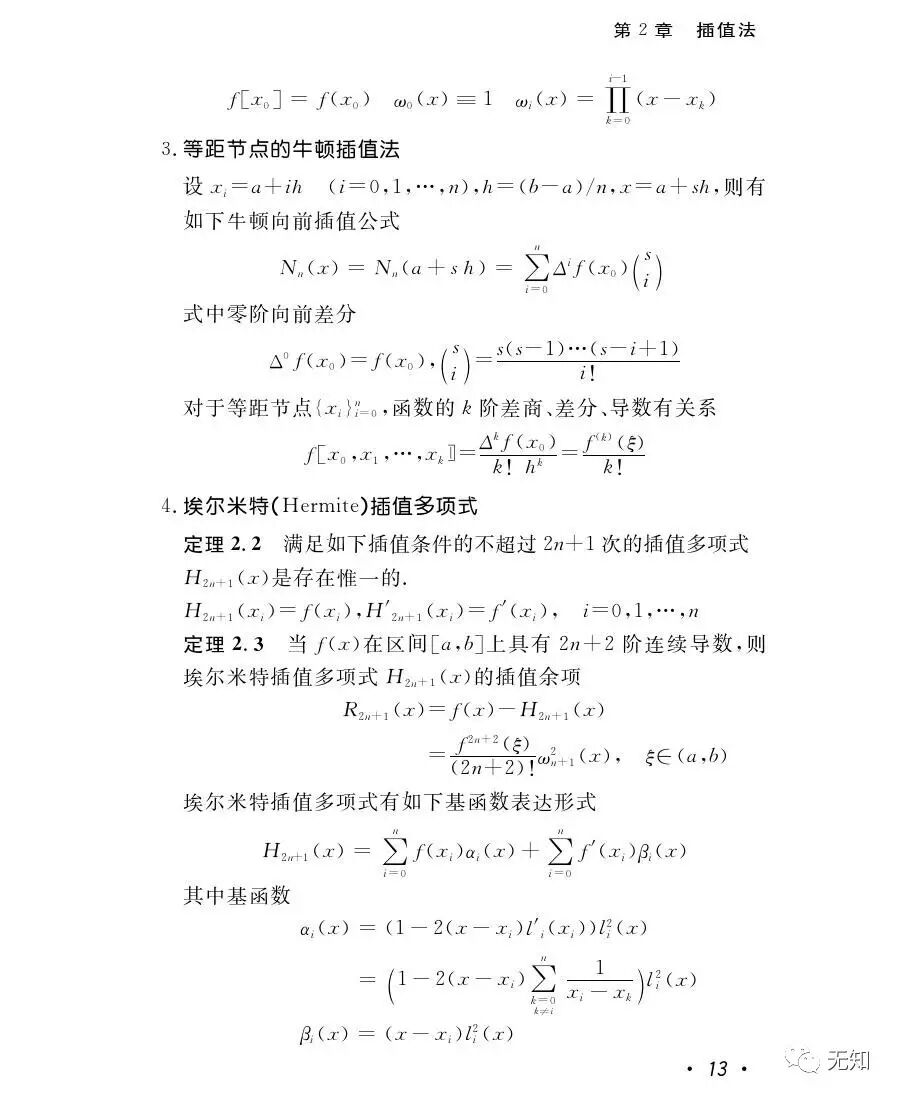 第 2 章 插值法
f[x₀] = f(x₀) ω₀(x) ≡ 1 ωᵢ(x) = ∏_{k=0}^{i-1} (x − x_k)
3. 等距节点的牛顿插值法
设 xᵢ=a+ih (i=0,1,…,n),h=(b−a)/n,x=a+sh,则有
如下牛顿向前插值公式
Nₙ(x) = Nₙ(a+s h) = ∑_{i=0}^{n} Δⁱf(x₀)(s i)
式中零阶向前差分
Δ⁰f(x₀)=f(x₀),(s i)=s(s−1)…(s−i+1)/i!
对于等距节点{xᵢ}ⁿᵢ₌₀,函数的 k 阶差商、差分、导数有关系
f[x₀,x₁,…,x_k]=Δᵏf(x₀)/(k! hᵏ)=f⁽ᵏ⁾(ξ)/k!
4. 埃尔米特(Hermite)插值多项式
定理 2.2 满足如下插值条件的不超过 2n+1 次的插值多项式
H₂ₙ₊₁(x)是存在惟一的.
H₂ₙ₊₁(xᵢ)=f(xᵢ),H′₂ₙ₊₁(xᵢ)=f′(xᵢ), i=0,1,…,n
定理 2.3 当 f(x)在区间[a,b]上具有 2n+2 阶连续导数,则
埃尔米特插值多项式 H₂ₙ₊₁(x)的插值余项
R₂ₙ₊₁(x)=f(x)−H₂ₙ₊₁(x)
=f²ⁿ⁺²(ξ)/(2n+2)! ω²ₙ₊₁(x), ξ∈(a,b)
埃尔米特插值多项式有如下基函数表达形式
H₂ₙ₊₁(x) = ∑_{i=0}^{n} f(xᵢ)αᵢ(x)+ ∑_{i=0}^{n} f′(xᵢ)βᵢ(x)
其中基函数
αᵢ(x) = (1−2(x−xᵢ)l′ᵢ(xᵢ))l²ᵢ(x)
= (1−2(x−xᵢ)∑_{k=0, k≠i}^{n} 1/(xᵢ−x_k))l²ᵢ(x)
βᵢ(x) = (x−xᵢ)l²ᵢ(x)
• 13 •
无知